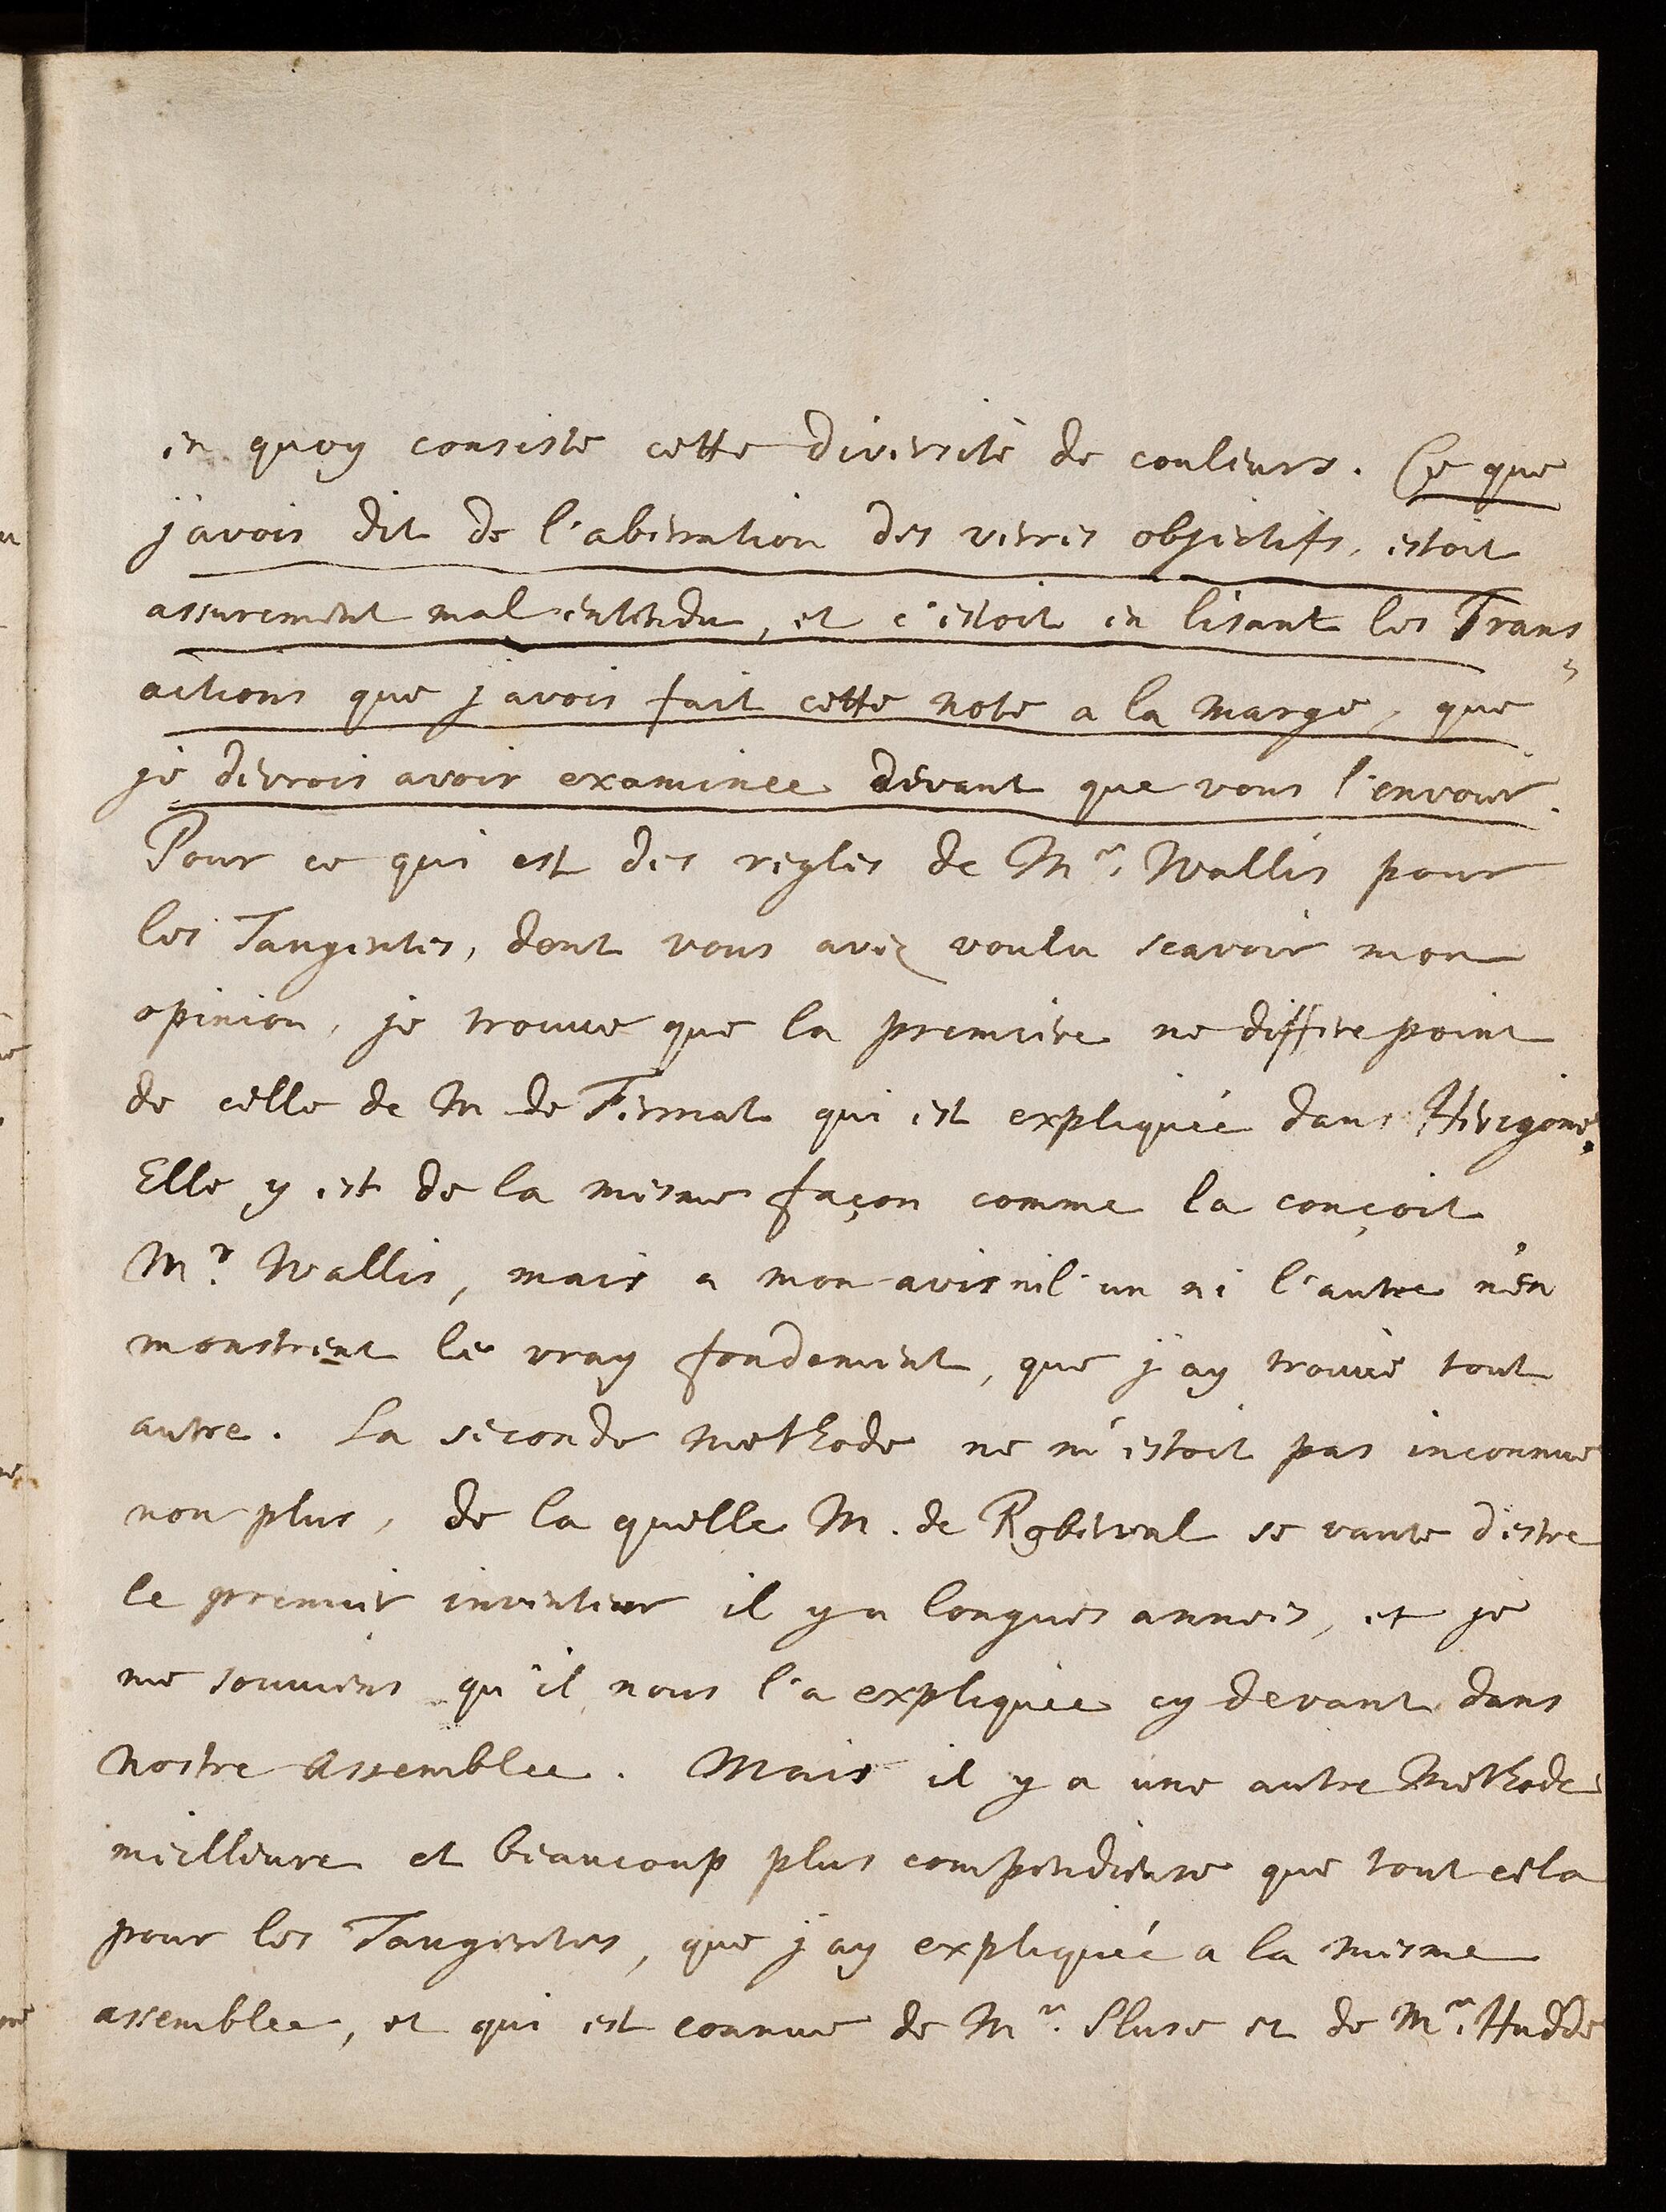 en quoy consiste cette diversitè de couleurs. Ce que
j'avois dit de l'aberration des verres objectifs, estoit
assurement mal entendu, et c'estoit en lisant les Trans
actions que j'avois fait cette note a la marge, que
je devrois avoir examinee devant que vous l'envoier.
Pour ce qui est des regles de Mr. Wallis pour
les Tangentes, dont vous avez voulu scavoir mon
opinion, je trouve que la premiere ne differe point
de celle de M de Fermat qui est expliquée dans Herigone.
Elle y est de la mesme façon comme la conçoit
Mr. Wallis, mais a mon avis ni l'un ni l'autre n'en
monstrent le vray fondement, que j'ay trouvè tout
autre. La seconde methode ne m'estoit pas inconnue
non plus, de la quelle M. de Roberval se vante d'estre
le premier inventeur il y a longues annees, et je
me souviens qu'il nous l'a expliquée cy devant dans
nostre Assemblee. Mais il y a une autre Methode
meilleure et beaucoup plus compendieuse que tout cela
pour les Tangentes, que j'ay expliquée a la mesme
assemblee, et qui est connue de Mr. Sluse et de Mr. Hudde